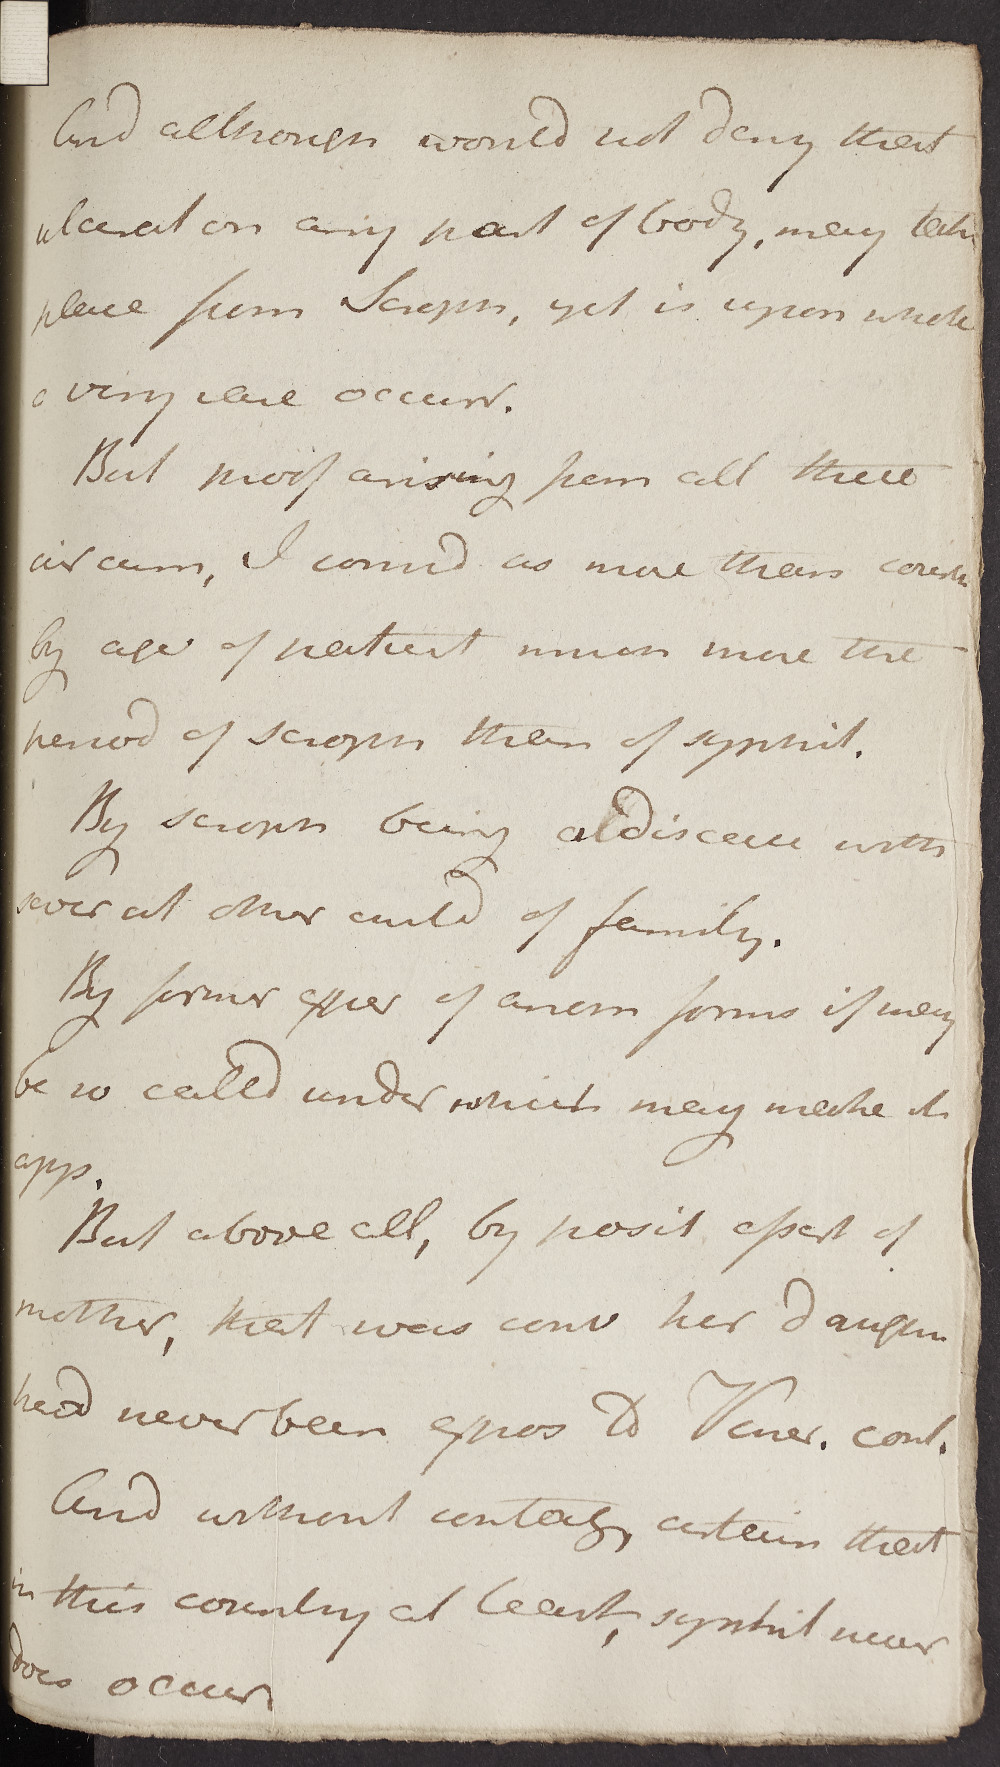 And although would not deny that
ulcerat on any part of body, may take
place from Scroph, yet is upon whole
a very rare occurr.
But proof arising from all these
circum, I consid as more than
by age of patient much more the
period of scroph than of syphil.
By scroph being a disease with
several other child of family.
By former appear of anom forms if may
be so called under which may make its
app.
But above all, by posit assert of
mother, that was conv her daughr
had never been expos to Vener. cont.
And without contag, certain that
in this country at least, syphil never
does occur